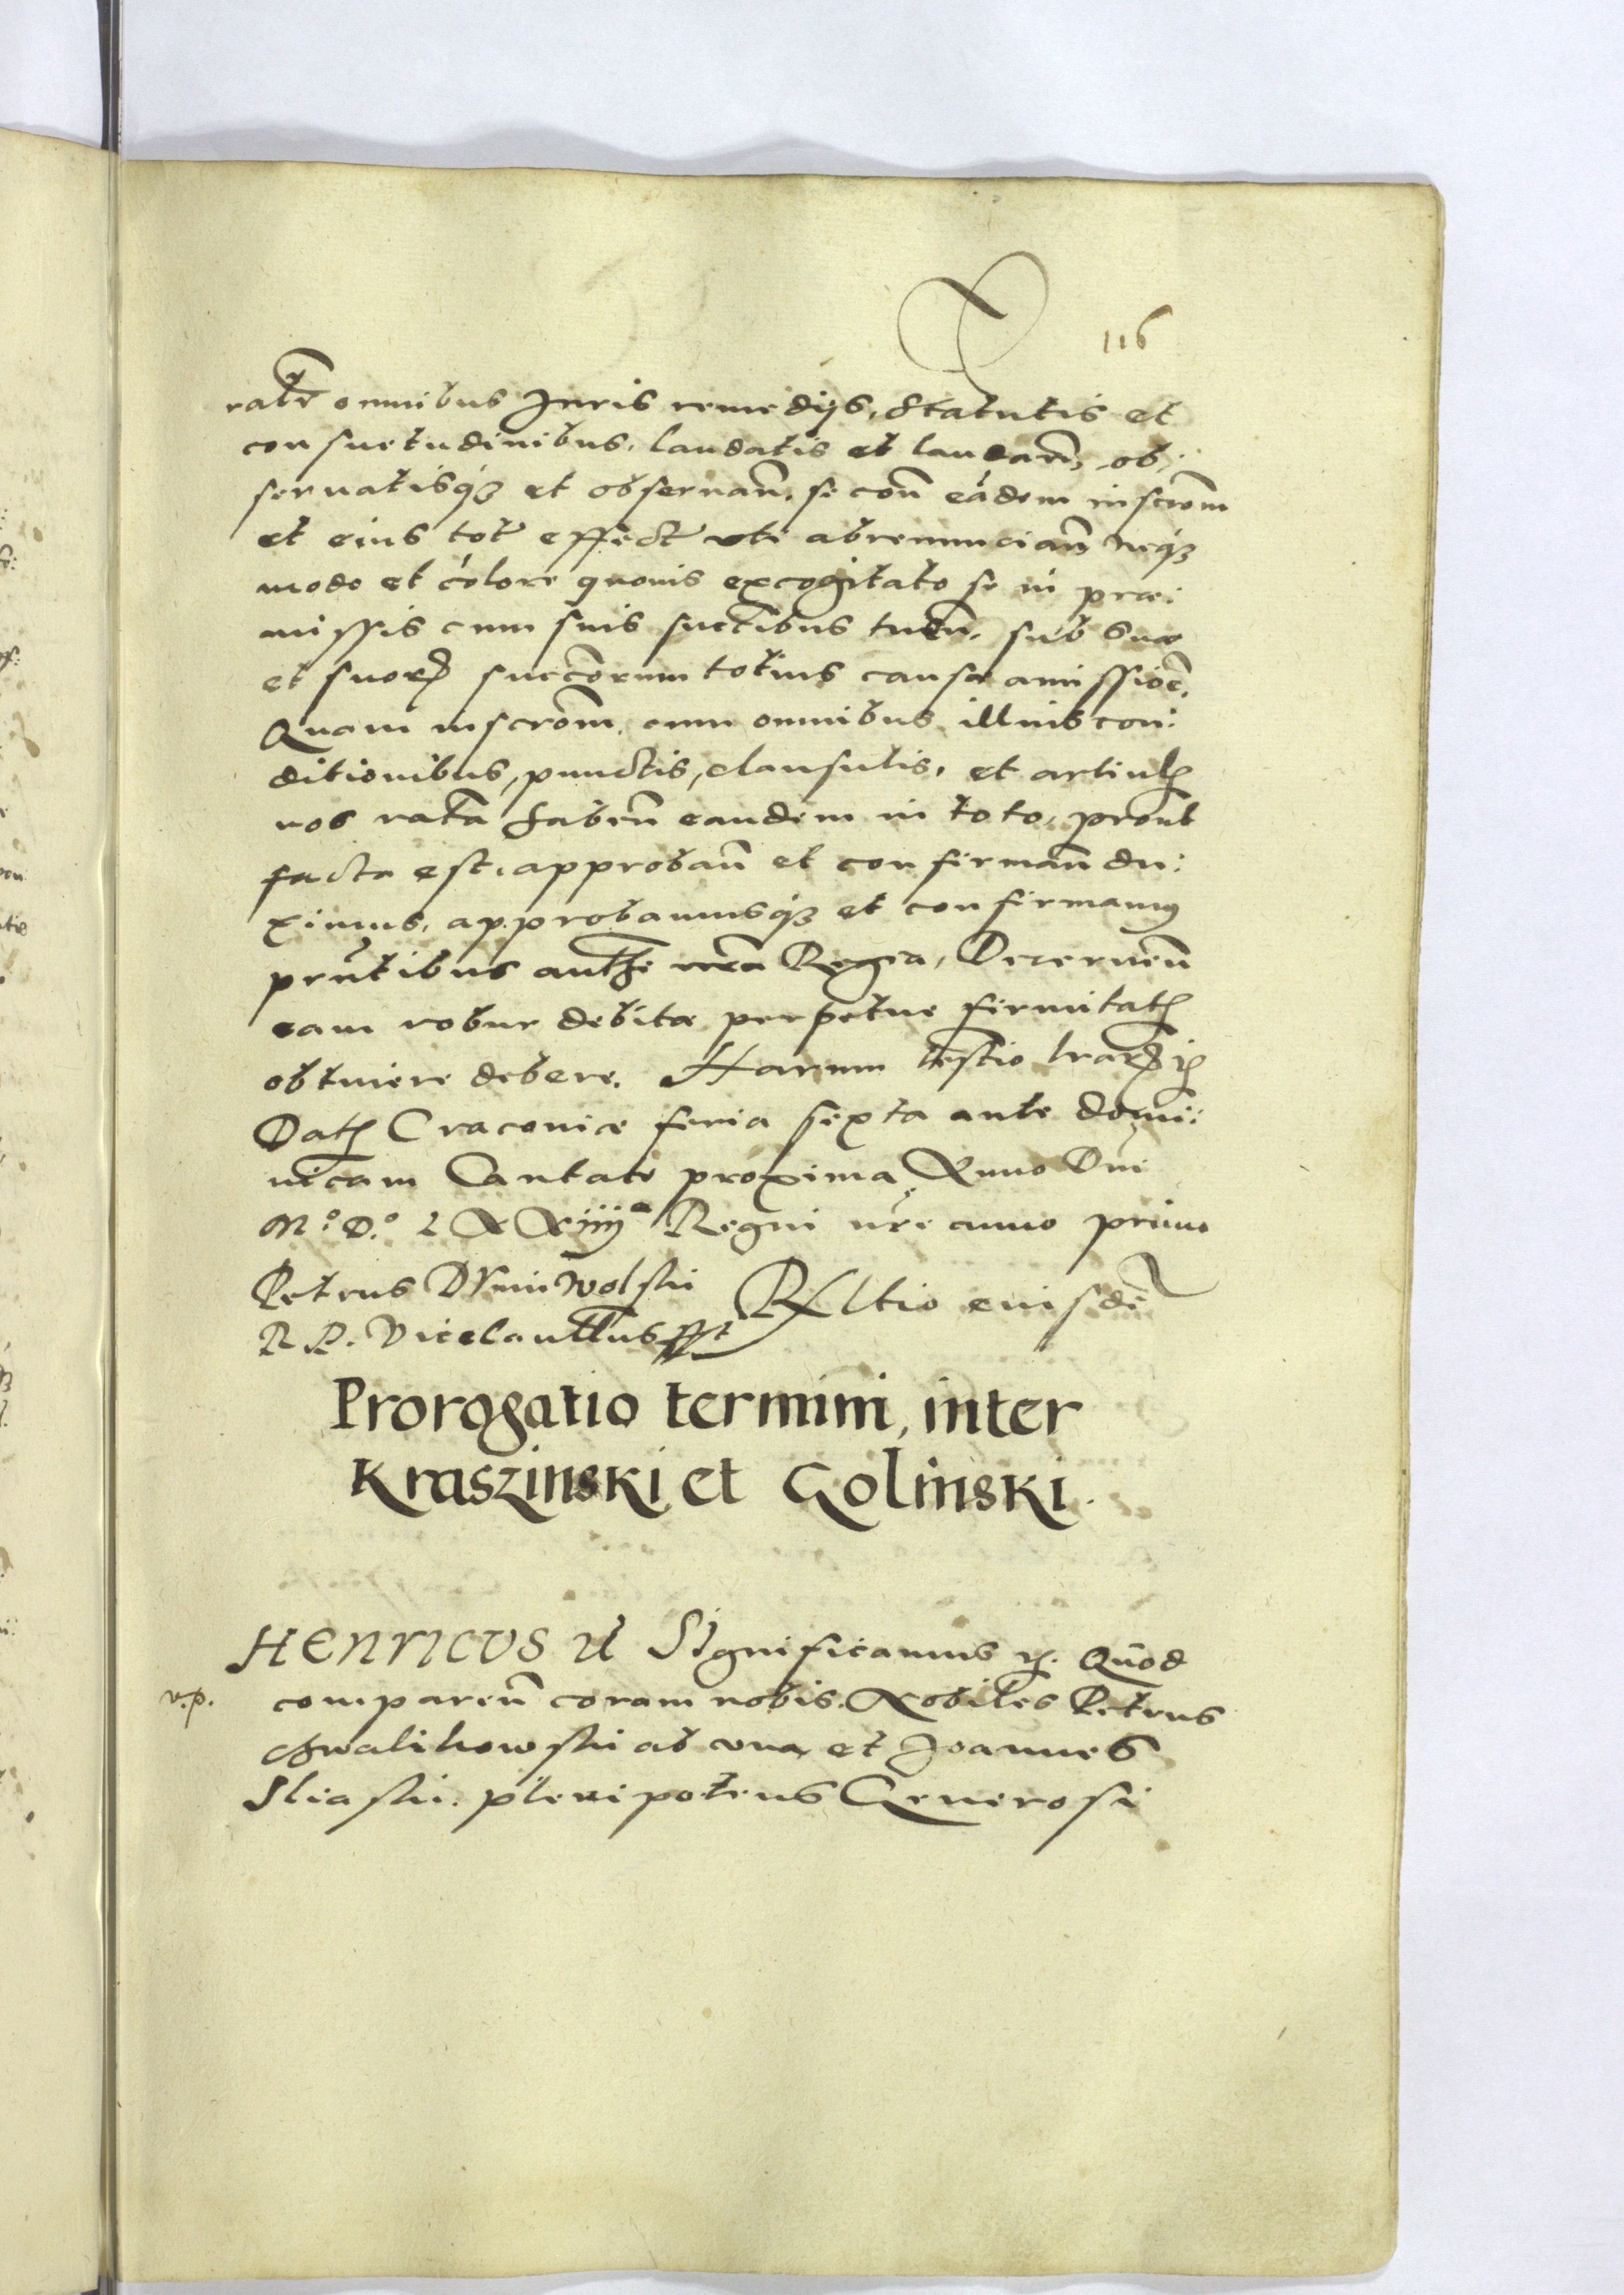 116
omnibus Juris remedijs, Statutis et
consuetudinibus, laudatis et laudan̄, ob:
servatisq́ȝ et observan̄. se con̄ eadem inscro̅m
et eius tot̄ effect̄ uti abrenuncian̄ neq́ȝ
modo et colore quovis excogitato se in præ:
missis cum suis succ̄ibus tuen̄. sub suæ
et suorꝝ succ̄orum totius causæ amissio̅e̅.
Quam inscro̅m. cum omnibus illius con:
ditionibus, punctis, clausulis, et articul̄
nos rata̅ haben̄ eandem in toto, prout
facta est, approban̄ et confirman̄ du:
ximus, approbamusq́ȝ et confirmamus
pru̅tibus auth̄e nr̄a Regia, Decernen̄
eam robur debitæ perpetue firmitat̄
obtinere debere. Harum testio lrarꝝ
Dat̄ Cracouiæ feria sexta ante domi:
nicam Cantate proxima Anno Dn̄i
M.º D.º LXXiiijº Regni nr̄i anno primo
Petrus Dvniwolski
R. P. Vicecan̄llrius sst
Rl̄tio eiusde̅
Prorogatio termini, inter
Kraszinski et Golinski.
HENRICVS et̄ Significamus ꝛ. Quod
v.p.
comparen̄ coram nobis. Nobiles Petrus
Chwalikowski ab una et Joannes
Sliaski. plenipotens Generosi